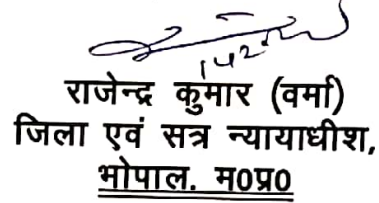 राजेन्द्र कुमार (वर्मा)
जिला एवं सत्र न्यायाधीश,
भोपाल. म0प्र0